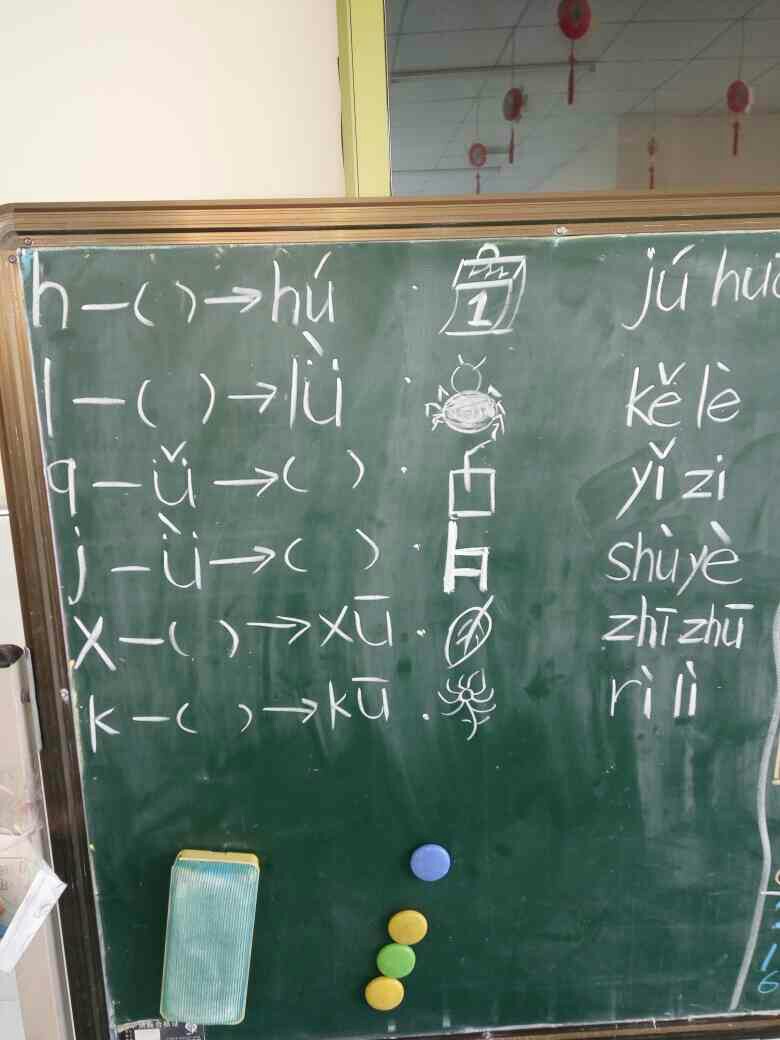 h — ( ) → hú 1
l — ( ) → lǜ kě lè
q — ǚ → ( ) yǐ zi
j — ǜ → ( ) shù yè
x — ( ) → xū zhī zhū
k — ( ) → kū rì lì
jú